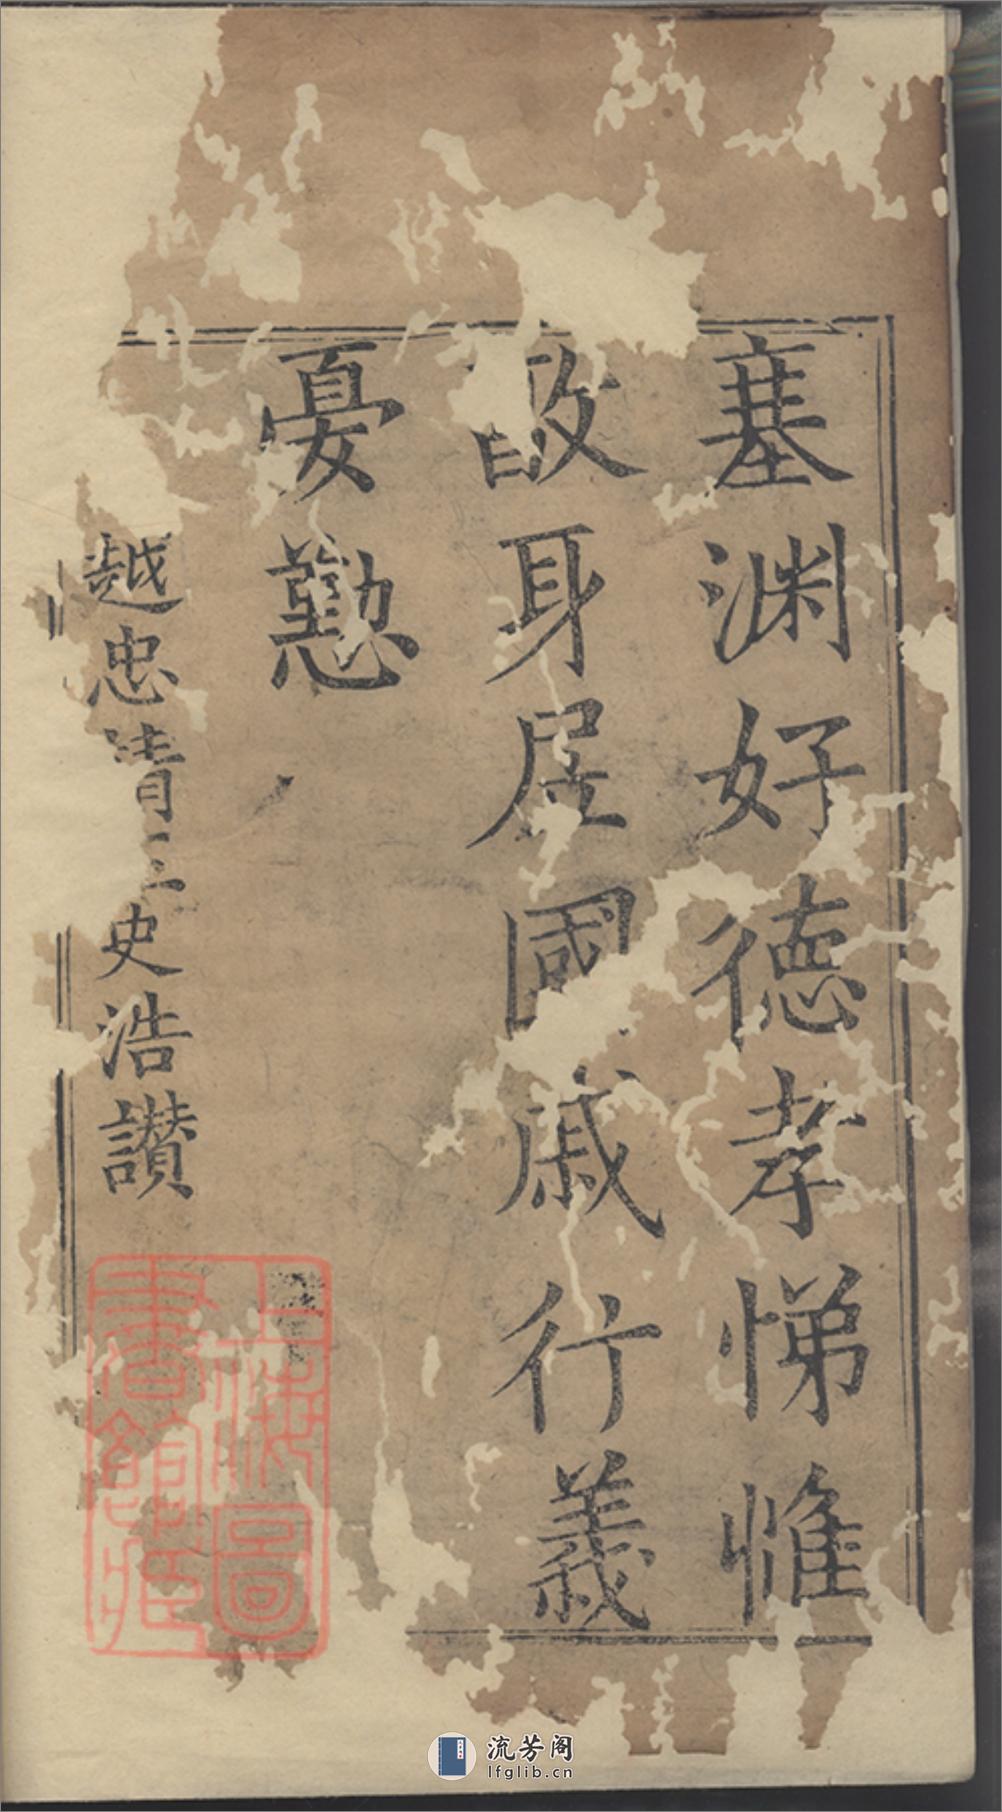 塞渊好德孝悌惟
身居國戚行義
憂懃
越忠清王史浩讃
上海圖
書館藏
流芳阁
lfglib.cn